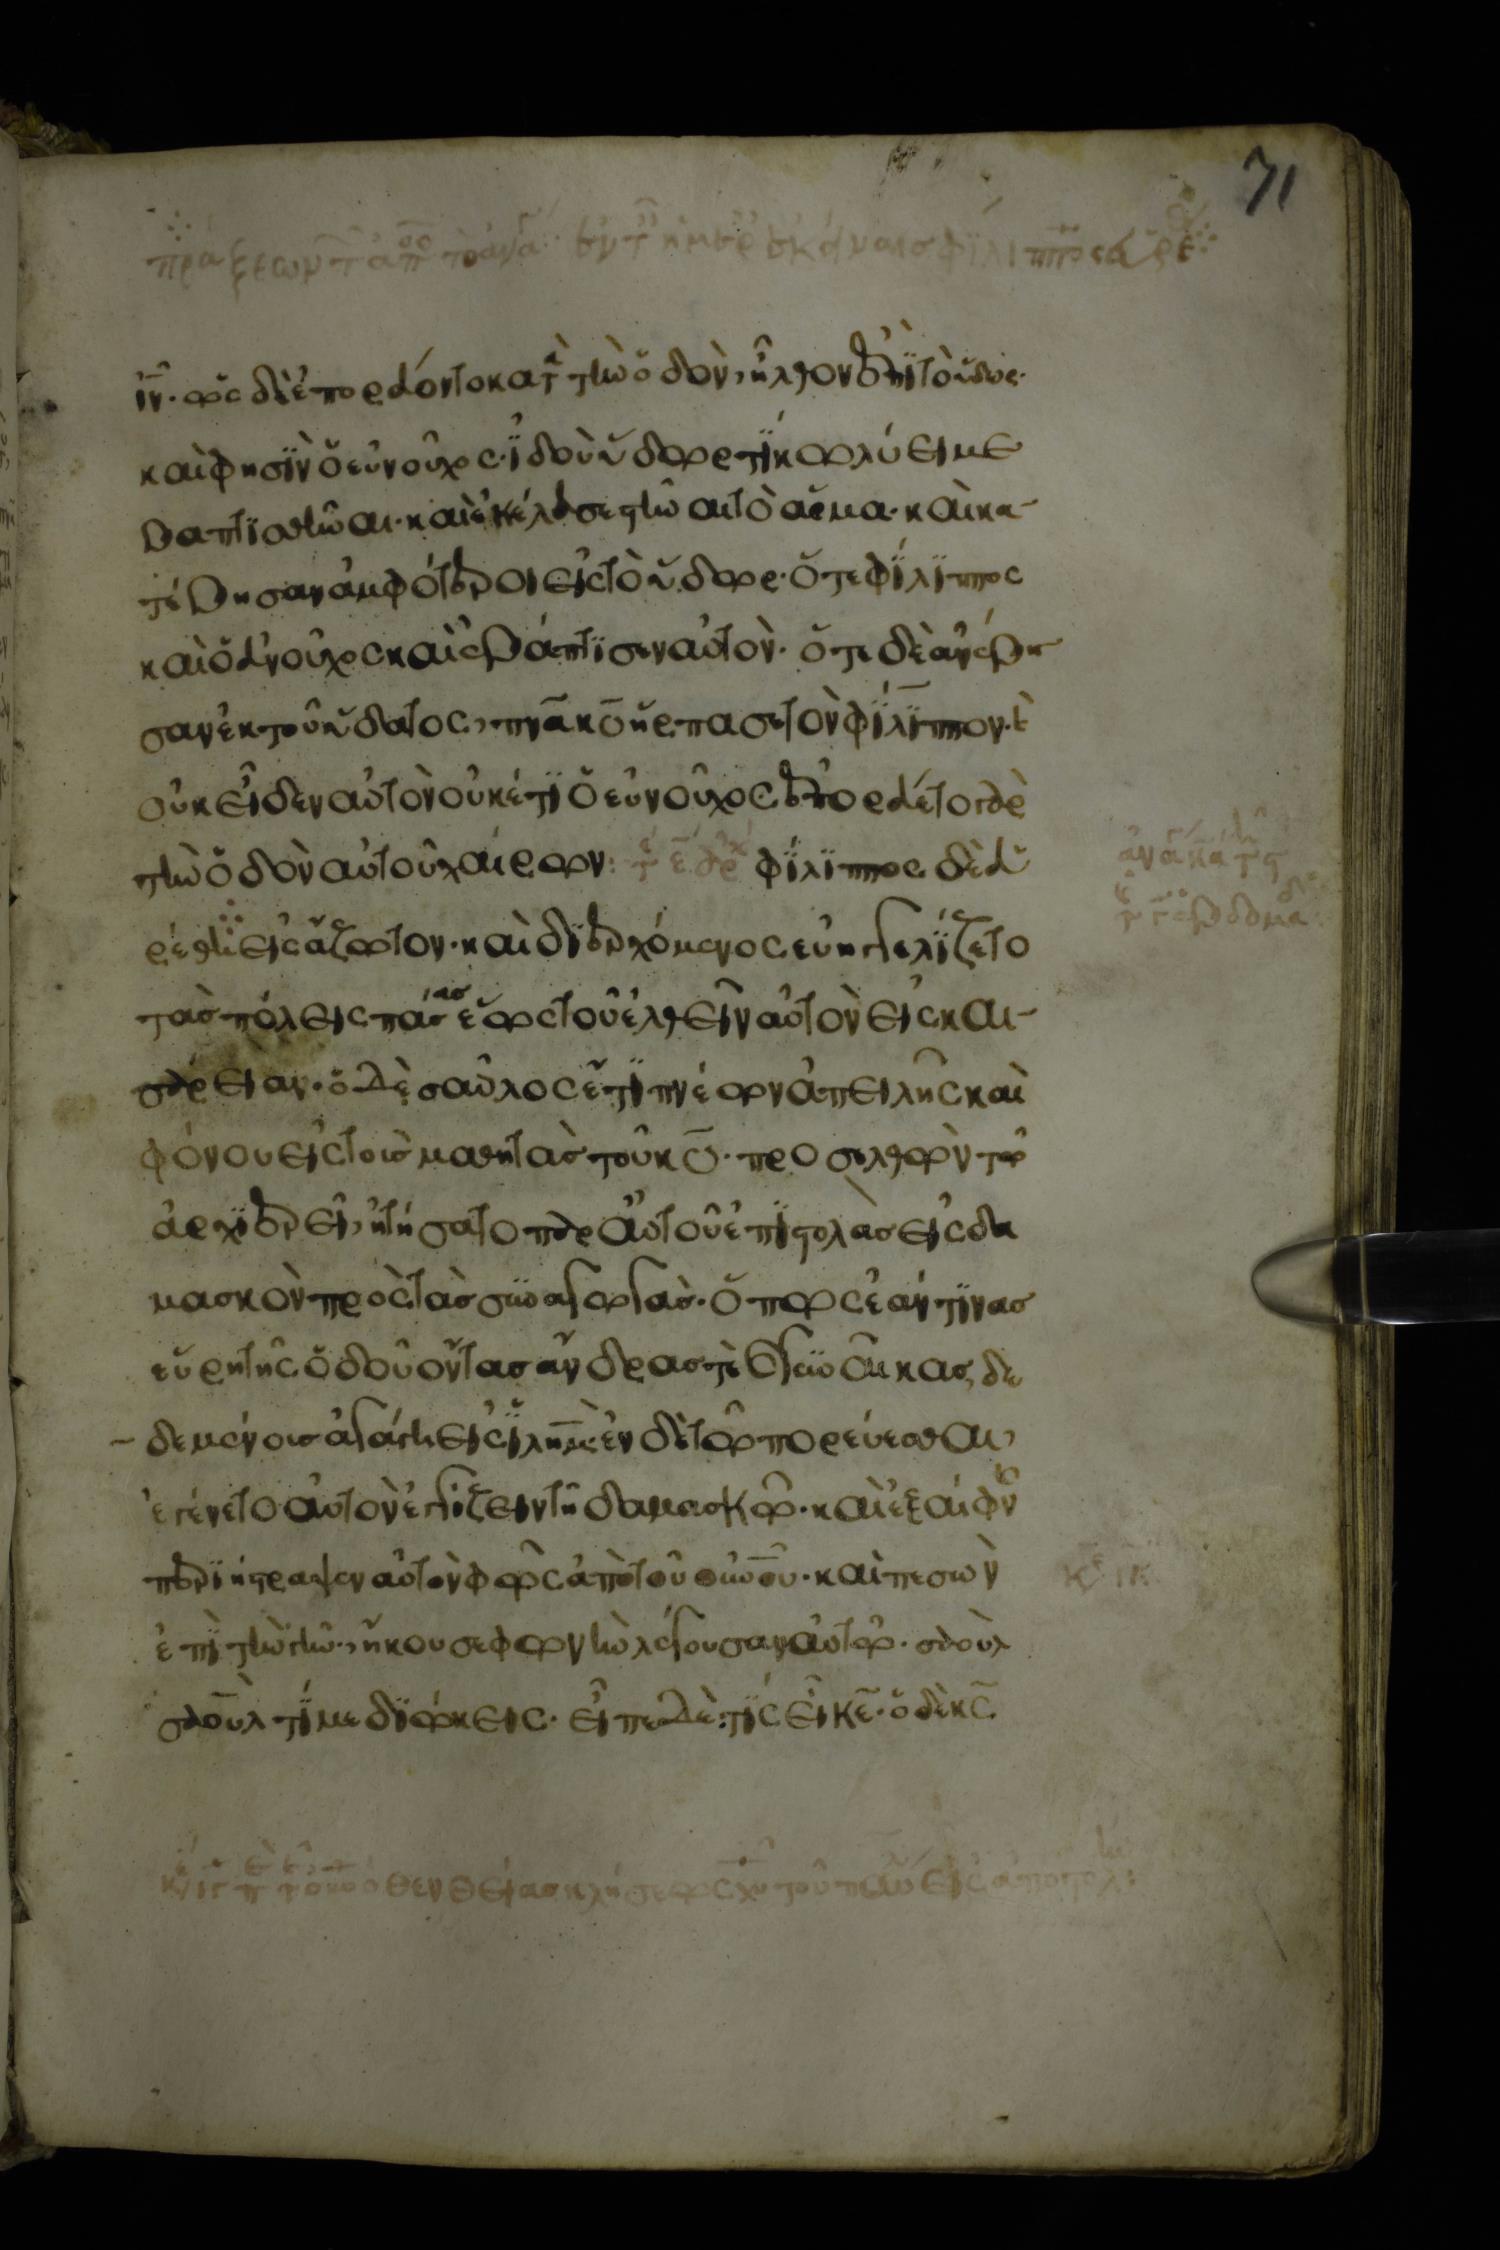 71
πράξεων τ ἀπ
ἰν̅· ὡς δὲ ἐπορεύοντο κατὰ τὴν ὁδὸν, ἦλθον ἐπὶ τὸ ὕδωρ·
καὶ φησὶν ὁ εὐνοῦχος· ἰδοὺ ὕδωρ τί κωλύει με
βαπτισθῆναι· καὶ ἐκέλευσε στῆναι τὸ ἅρμα· καὶ κα-
τέβησαν ἀμφότεροι εἰς τὸ ὕδωρ· ὅ τε φίλιππος
καὶ ὁ εὐνοῦχος καὶ ἐβάπτισεν αὐτὸν· ὅτε δὲ ἀνέβη
σαν ἐκ τοῦ ὕδατος, πνα̅ κυ̅ ἥρπασε τὸν φίλιππον· καὶ
οὐκ εἶδεν αὐτὸν οὐκέτι ὁ εὐνοῦχος ἐπορεύετο γὰρ
τὴν ὁδὸν αὐτοῦ χαίρων: φίλιππος δὲ εὑ
ρέθη εἰς ἄζωτον· καὶ διερχόμενος εὐηγγελίζετο
τὰς πόλεις πάσας ἕως τοῦ ἐλθεῖν αὐτὸν εἰς και-
σάρειαν· ὁ δὲ σαῦλος ἔτι πνέων ἀπειλῆς καὶ
φόνου εἰς τοὺς μαθητὰς τοῦ κυ̅· προσελθὼν τῷ
ἀρχιερεῖ, ἠτήσατο παρ αὐτοῦ ἐπιστολὰς εἰς δα
μασκὸν πρὸς τὰς συναγωγὰς· ὅπως ἐάν τινας
εὕρῃ τῆς ὁδοῦ ὄντας ἄνδρας τὲ καὶ γυναῖκας, δε
δεμένους ἀγάγῃ εἰς ἱλημ̅· ἐν δὲ τῷ πορεύεσθαι,
ἐγένετο αὐτὸν ἐγγίζειν τῇ δαμασκῷ· καὶ ἐξαίφνης
περιήστραψεν αὐτὸν φῶς ἀπὸ τοῦ οὐνου̅· καὶ πεσὼν
ἐπὶ τὴν γῆν, ἤκουσε φωνὴν λέγουσαν αὐτῷ· σαοὺλ
σαοὺλ τί με διώκεις· εἶπε δὲ· τίς εἶ κε̅· ὁ δὲ κς̅